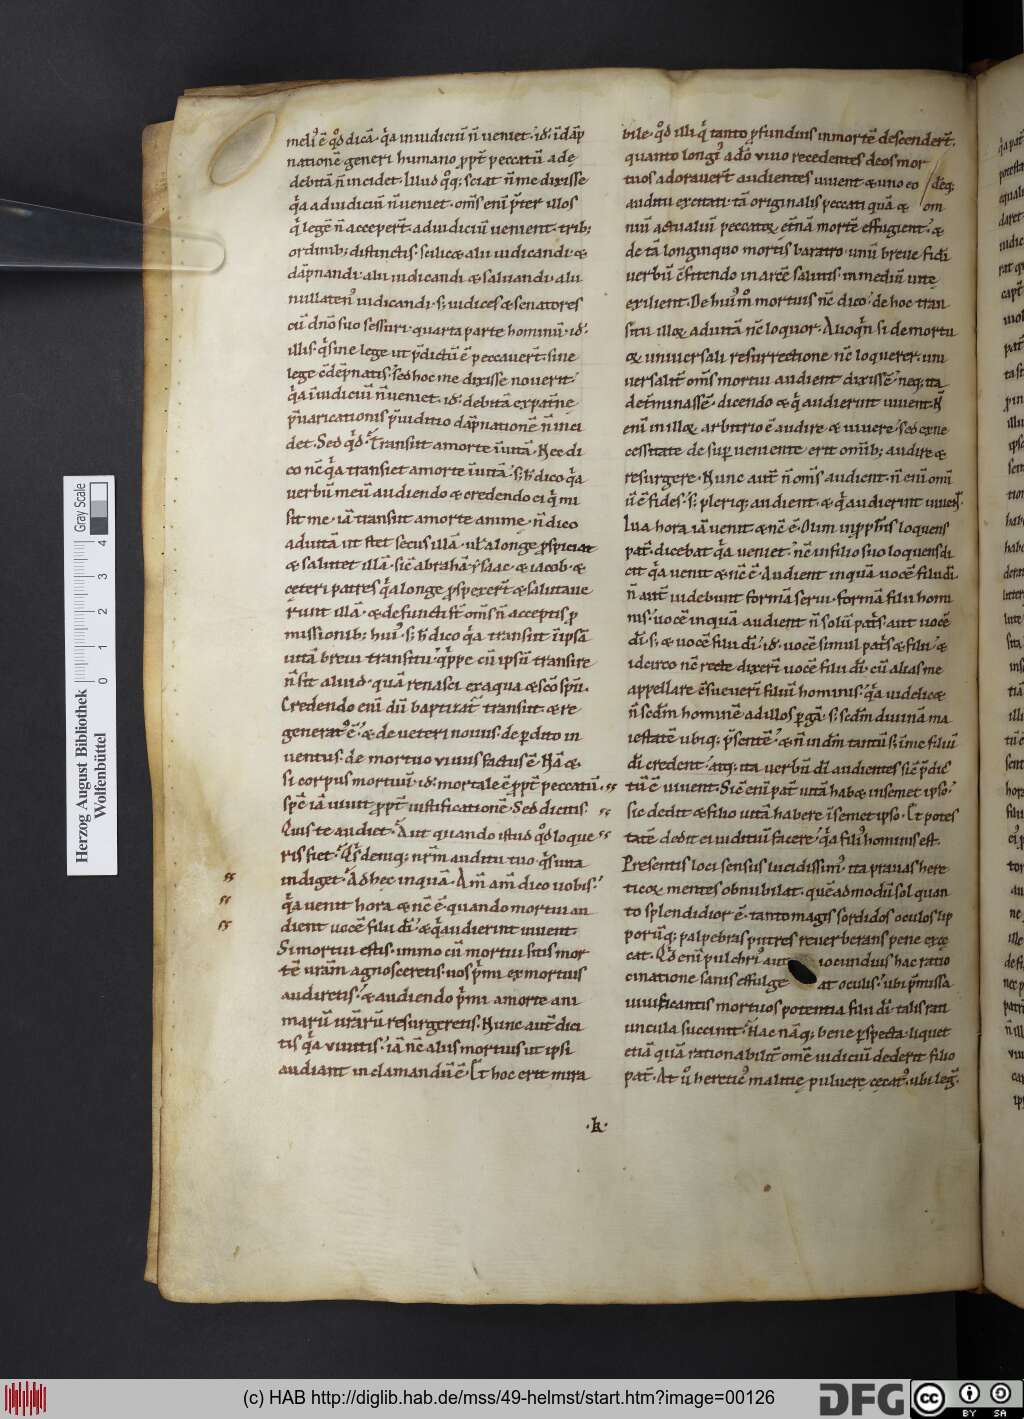 meli᷒ ē qd̄ dicā · q̄a in iudiciū n̄ veniet · id᷒ · ī dāp
natione generi humano ꝓpt̄ peccatū adę
debitā n̄ incidet · Illud q̊q; sciat n̄ me dixisse
q̄a ad iudiciū n̄ veniet · om̄s eni p̄ter illos
q̄ legē n̄ accepert̄ · ad iudiciū venient · trib;
ordinib; distinctis · scilicet alii iudicandi · &
dāpnandi · alii iudicandi & saluandi · alii
nullaten᷒ iudicandi · s; iudices & senatores
cū dn̄o suo sessuri · quarta parte hominū · id᷒ ·
illis · q̄ sine lege ut p̄dictū ē peccauert̄ · sine
lege cōdēpnatis · sed hoc me dixisse nouerit ·
q̄a ī iudiciū n̄ veniet · id᷒ · debitā ex pat̄ne
p̄uaricationis p̄iuditio dāpnationē n̄ inci
det · Sed qd̄ · Transiit a morte ī uitā · Nec di
co nc̄ q̄a transiet a morte ī uitā · s; h̄ dico q̄a
uerbū meū audiendo & credendo ei q̄ mi
sit me · iā transiit a morte anime · n̄ dico
ad uitā ut stet secus illā · ut a longe ꝓspiciat
& salutet illā · sic abrahā · ysaac · & iacob · &
ceteri patres q̄ a longe ꝓspexert̄ · & salutaue
runt illā · & defuncti st̄ om̄s n̄ acceptis ꝓ
missionib; hui᷒ · s; h̄ dico q̄a transiit ī ipsā
uitā breui transitu · q̄ppe cū ipsū transire
n̄ sit aliud · quā renasci ex aqua & sc̄o sp̄u ·
Credendo eni dū baptizat̄ transiit · & re
generat᷒ ē · & de ueteri nouus · de perdito in
uentus · de mortuo viuus factus ē · Nā &
si corpus mortuū · id᷒ · mortale ē ꝓpt̄ peccatū ·
sp̄c iā uiuit ꝓpt̄ iustificationē · Sed dicitis ·
Quis te audiet · Aut quando istud qd̄ loque
ris fiet · Q̄s deniq; nr̄m auditu tuo · q̄ si uita
indiget · Ad hęc inquā · Am̄ am̄ dico uobis ·
q̄a uenit hora & nc̄ ē · quando mortui au
dient uocē filii di · & q̄ audierint uiuent ·
Si mortui estis · immo cū mortui sitis mor
tē urām agnosceretis · uos p̄mi ex mortuis
audiretis · & audiendo p̄mi a morte ani
marū urārū resurgeretis · Nunc aut̄ dici
tis q̄a viuitis · iā nc̄ aliis mortuis ut ipsi
audiant inclamandū ē · Et hoc erit mira
bile · qd̄ illi q̄ tanto ꝓfundius in mortē descendert̄ ·
quanto longi᷒ a dō viuo recedentes deos mor
tuos adorauert̄ audientes uiuent & uno eo deq;
auditu excitati · tā originalis peccati quā & om
niū actualiū peccatoꝝ et̄nā mortē effugient · &
de tā longinquo mortis baratro · unū breue fidi
uerbū cōfitendo in arcē salutis · in mediū uitę
exilient · De hui᷒ m̊ mortuis nc̄ dico · de hoc tran
situ illoꝝ ad uitā nc̄ loquor · Alioq̄n si de mortu
oꝝ uniuersali resurrectione nc̄ loquerer · uni
uersalit̄ om̄s mortui audient dixissē · neq; ita
det̄minassē · dicendo & q̄ audierint uiuent · N̄
eni in illoꝝ arbitrio ē audire & uiuere · sed ex ne
cessitate desup̄ ueniente erit om̄ib; audire &
resurgere · Nunc aut̄ n̄ om̄s audient · n̄ eni omi
ū ē fides · s; pleriq; audient · & q̄ audierint uiuent ·
Qua hora iā uenit & nc̄ ē · Dum in ꝓph̄is loquens
pat̄ · dicebat q̄a ueniet · nc̄ in filio suo loquens di
cit q̄a uenit & nc̄ ē · Audient inquā uocē filii di ·
n̄ aut̄ uidebunt formā serui · formā filii homi
nis · uocē inquā audient n̄ solū pat̄s · aut uocē
di · s; & uocē filii di · id᷒ · uocē simul pat̄s & filii · &
idcirco nc̄ recte dixerī uocē filii di · cū alias me
appellare cōsueuerī filiū hominis · q̄a uidelicet
n̄ scdm̄ hominē ad illos pergā · s; scdm̄ diuinā ma
iestatē ubiq; p̄sentē · & n̄ in dm̄ tantū s; in me filiū
di credent · atq; ita uerbū di audientes sic p̄dic
tū ē uiuent · Sic eni pat̄ uitā habet in semet ipso ·
sic dedit & filio uitā habere ī semet ipso · Et potes
tatē dedit ei iuditiū facere · q̄a fili᷒ hominis est ·
Presentis loci sensus lucidissim᷒ · ita prauas here
ticoꝝ mentes obnubilat · quēadmodū sol quan
to splendidior ē · tanto magis sordidos oculos lip
porūq; palpebras putres reuerberans pene exce
cat · Qd̄ eni pulchri᷒ aut iocundius hac ratio
cinatione sanis effulge at oculis · ubi p̄missa
uiuificantis mortuos potentia filii di · talis rati
uncula succinit · Hac nāq; bene perspecta liquet
etiā quā rationabilit̄ omē iudiciū dederit filio
pat̄ · At ů heretic᷒ malitię puluere cecat᷒ · ubi leḡ ·
·k·
Herzog August Bibliothek
Wolfenbüttel
0 1 2 3 4
Gray Scale
(c) HAB http://diglib.hab.de/mss/49-helmst/start.htm?image=00126
DFG
cc BY SA